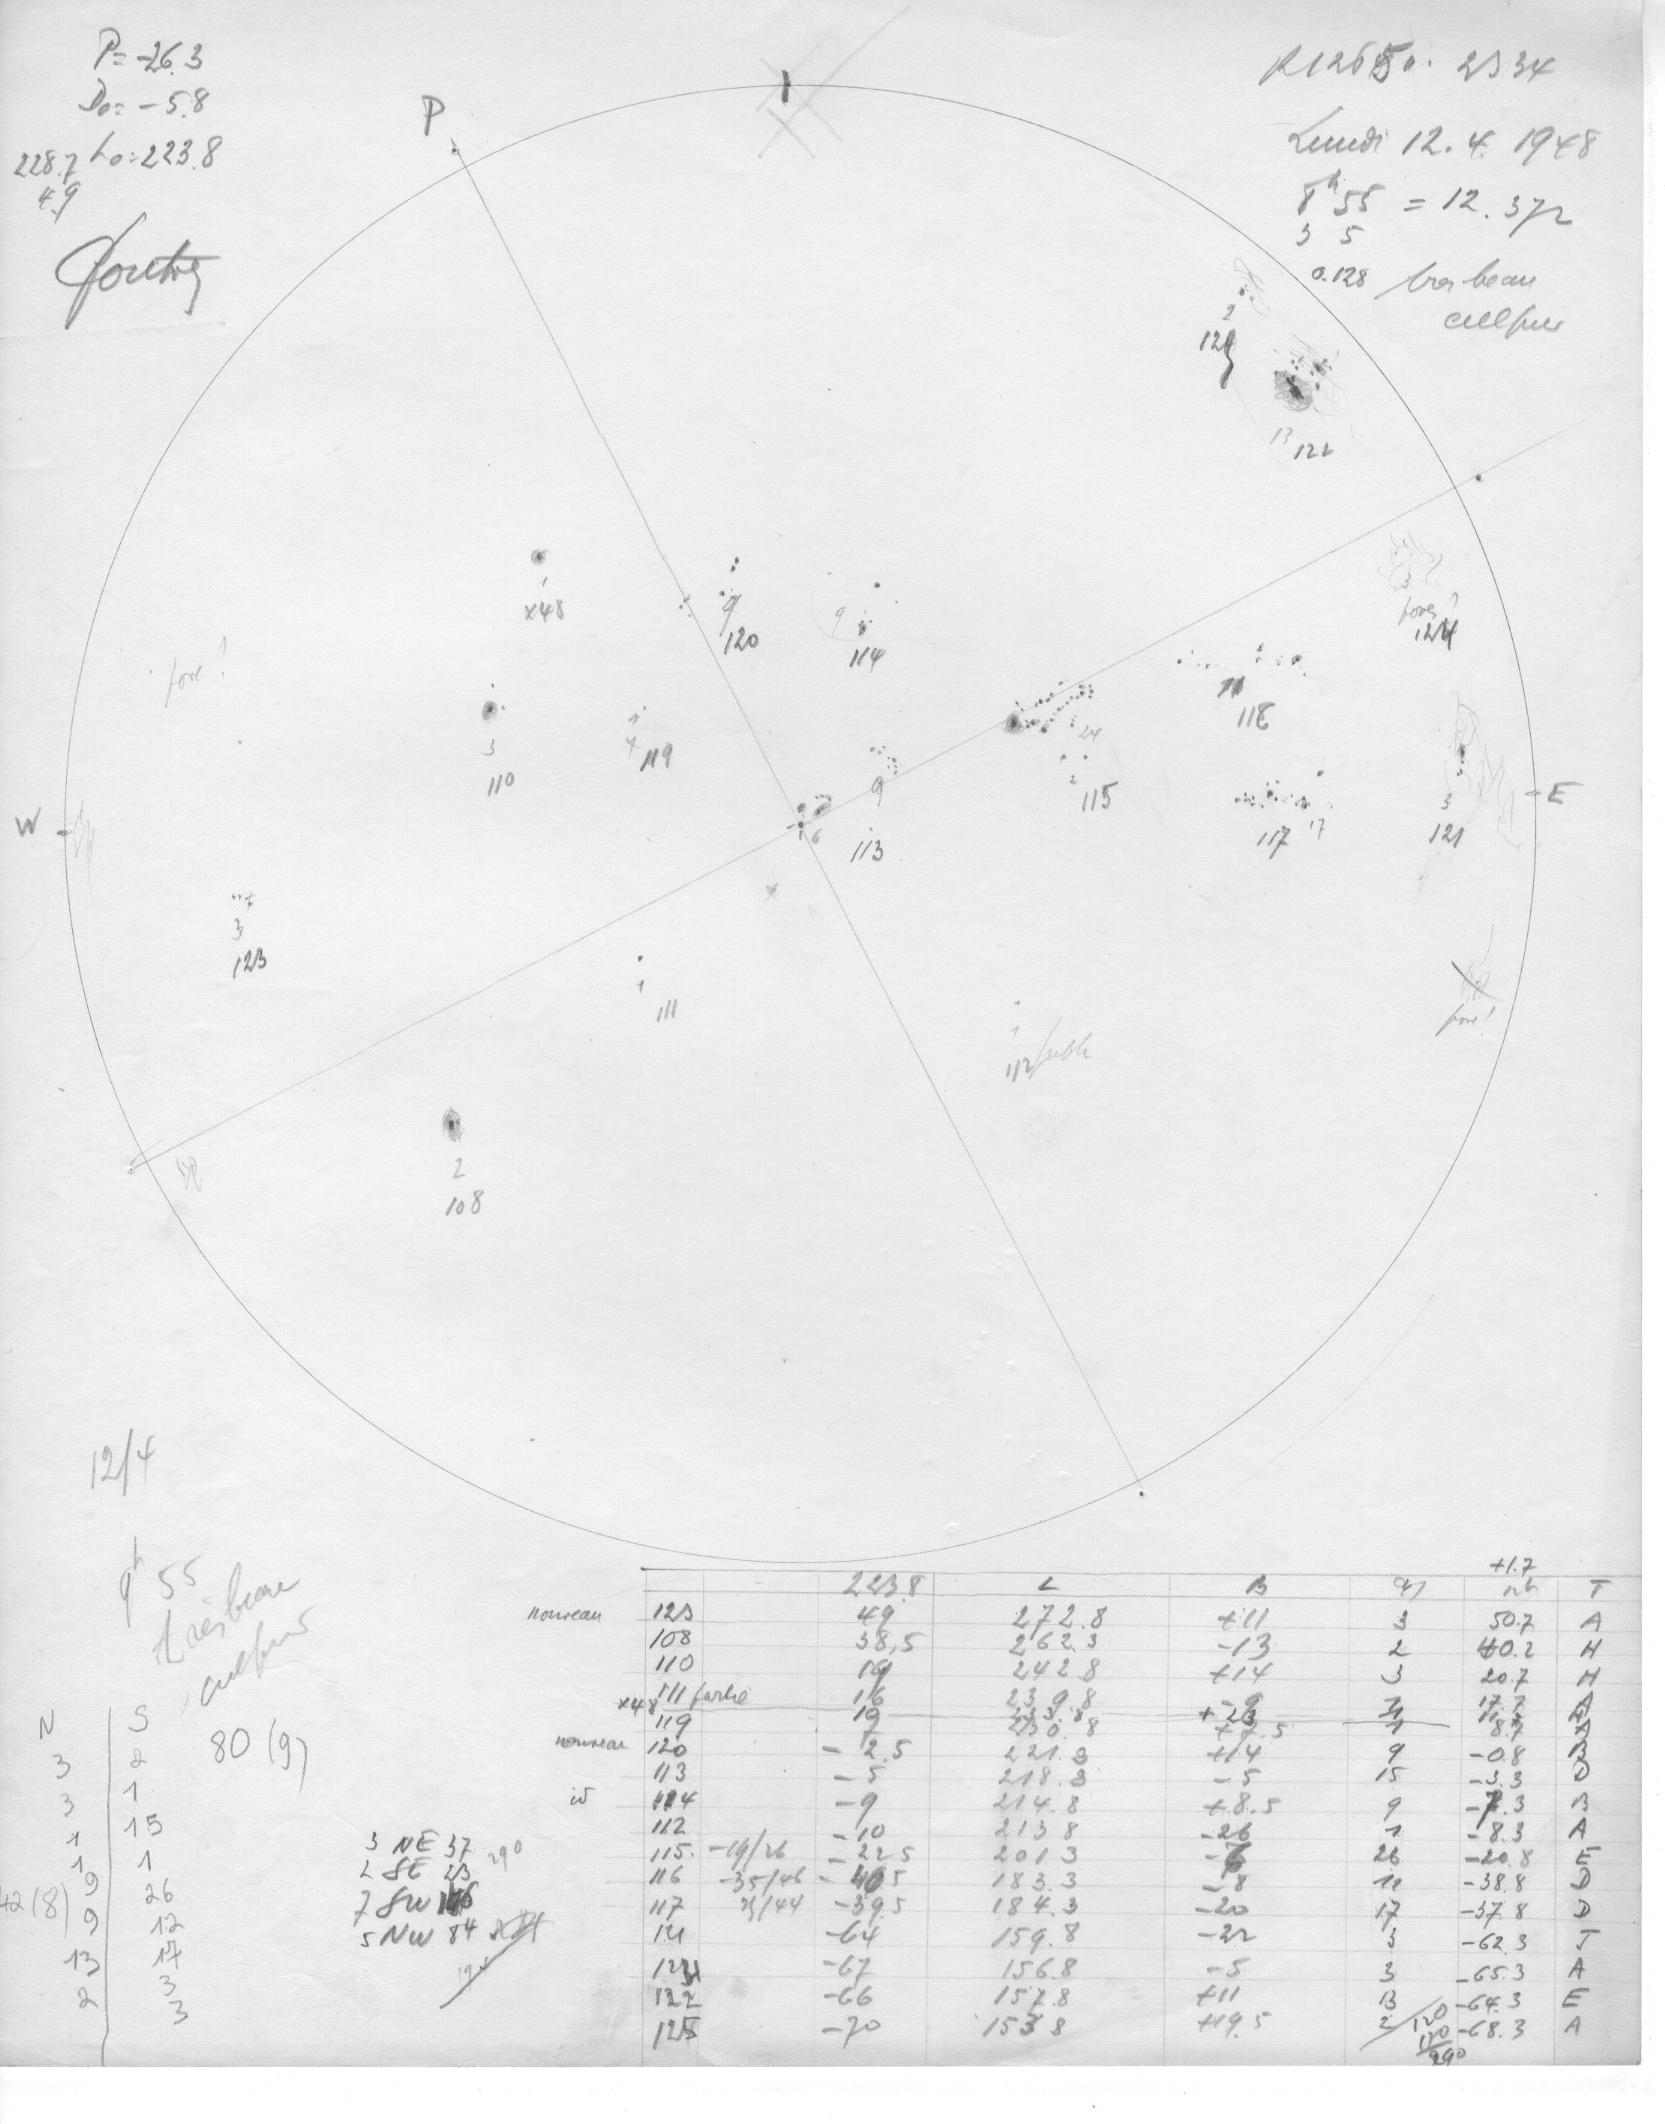 P= -26.3
Do= -5.8
228.7 Lo=223.8
4.9
P
2334
Lundi 12.4.1948
8h 55 = 12.372
3 5
0.128 très beau
2
13 122
x48
9
120
9
114
fov?
124
118
3
110
119
24
2
115
9
113
6
117 17
3
121
W
E
3
123
1
111
1
112 faible
2
108
12/4
9h 55
très beau
80 (9)
N S
3 2
3 1
1 15
1 1
9 26
42(8) 9 12
13 17
2 3
3
3 NE 37
2 SE 23 290
7 SW 146
5 NW 84
+1.7
223.8 L B T
nouveau 123 49 272.8 +11 3 50.7 A
108 38,5 262.3 -13 2 40.2 H
110 19 242.8 +14 3 20.7 H
111 faible 16 239.8 -9 1 17.7 A
x48
119 7 230.8 +7.5 1 8.7 A
nouveau 120 -2.5 221.3 +14 9 -0.8 B
113 -5 218.8 -5 15 -3.3 D
id 114 -9 214.8 +8.5 9 -7.3 B
112 -10 213.8 -26 1 -8.3 A
115 -19/26 -22.5 201.3 -6 26 -20.8 E
116 -35/46 -40.5 183.3 -8 12 -38.8 D
117 35/44 -39.5 184.3 -20 17 -37.8 D
121 -64 159.8 -22 3 -62.3 J
124 -67 156.8 -5 3 -65.3 A
122 -66 157.8 +11 13 -64.3 E
125 -70 153.8 +19.5 2 -68.3 A
120
170
290